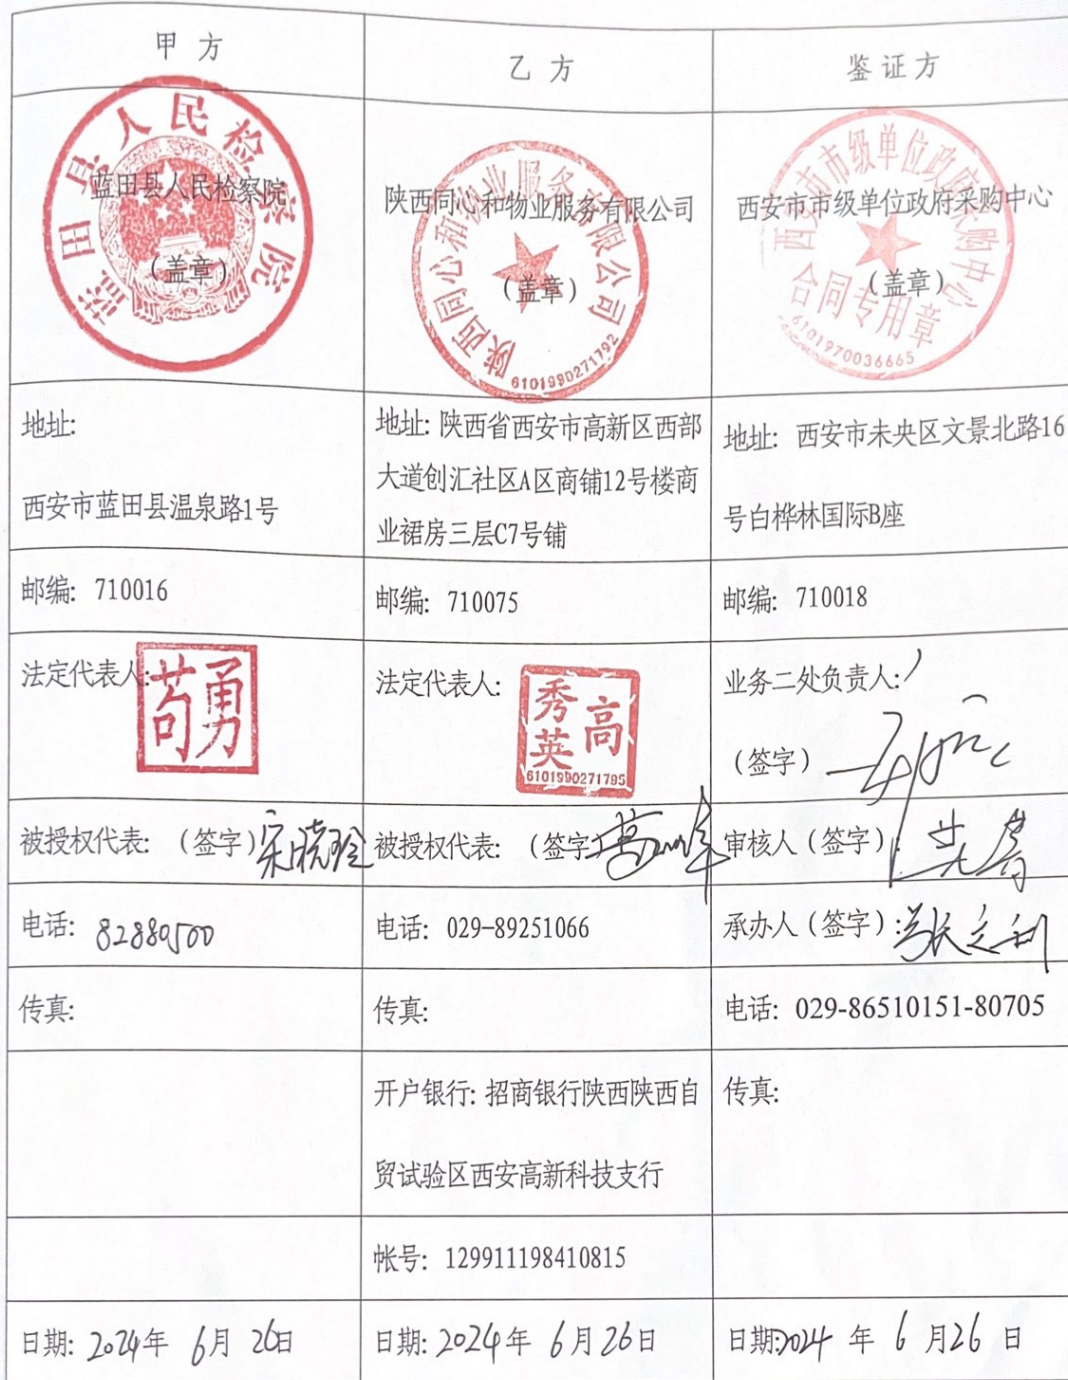 甲方
乙方
鉴证方
蓝田县人民检察院
蓝田县人民检察院
（盖章）
陕西同心和物业服务有限公司
陕西同心和物业服务有限公司
（盖章）
6101990271792
西安市市级单位政府采购中心
西安市市级单位政府采购中心
（盖章）
合同专用章
6101970036665
地址:
西安市蓝田县温泉路1号
地址: 陕西省西安市高新区西部
大道创汇社区A区商铺12号楼商
业裙房三层C7号铺
地址: 西安市未央区文景北路16
号白桦林国际B座
邮编: 710016
邮编: 710075
邮编: 710018
法定代表人:
苟勇
法定代表人:
高秀英
6101990271795
业务二处负责人:
（签字）
被授权代表: （签字）宋晓玲
被授权代表: （签字）
审核人（签字）:
电话: 82880500
电话: 029-89251066
承办人（签字）:
传真:
传真:
电话: 029-86510151-80705
开户银行: 招商银行陕西陕西自
贸试验区西安高新科技支行
传真:
帐号: 129911198410815
日期: 2024年 6月 26日
日期: 2024年 6月26日
日期:2024 年 6 月26 日